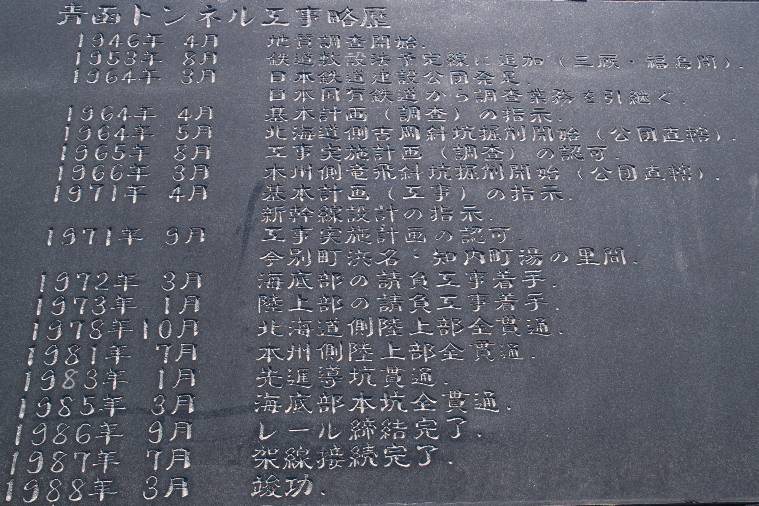 青函トンネル工事略歴
1946年 4月 地質調査開始.
1953年 8月 鉄道敷設法予定線に追加(三厩・福島間).
1964年 3月 日本鉄道建設公団発足.
日本国有鉄道から調査業務を引継ぐ.
1964年 4月 基本計画(調査)の指示.
1964年 5月 北海道側吉岡斜坑掘削開始(公団直轄).
1965年 8月 工事実施計画(調査)の認可.
1966年 3月 本州側竜飛斜坑掘削開始(公団直轄).
1971年 4月 基本計画(工事)の指示.
新幹線設計の指示.
1971年 9月 工事実施計画の認可
今別町浜名・知内町湯の里間.
1972年 3月 海底部の請負工事着手.
1973年 1月 陸上部の請負工事着手.
1978年 10月 北海道側陸上部全貫通.
1981年 7月 本州側陸上部全貫通.
1983年 1月 先進導坑貫通.
1985年 3月 海底部本坑全貫通.
1986年 9月 レール締結完了.
1987年 7月 架線接続完了.
1988年 3月 竣功.